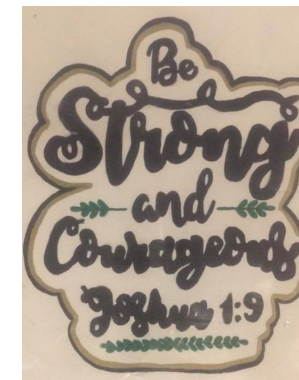 Be
Strong
and
Courageous
Joshua 1:9